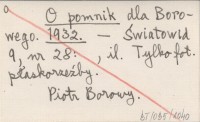 O pomnik dla Boro-
wego. 1932. — Światowid
9, nr 28: , il. Tylko fot.
płaskorzeźby.
Piotr Borowy.